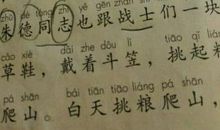 朱德同志也跟战士们一块
cǎo xié dài zhe dǒu lì tiāo qǐ
草鞋，戴着斗笠，挑起粮
pá shān bái tiān tiāo liáng pá shān
爬山。白天挑粮爬山，